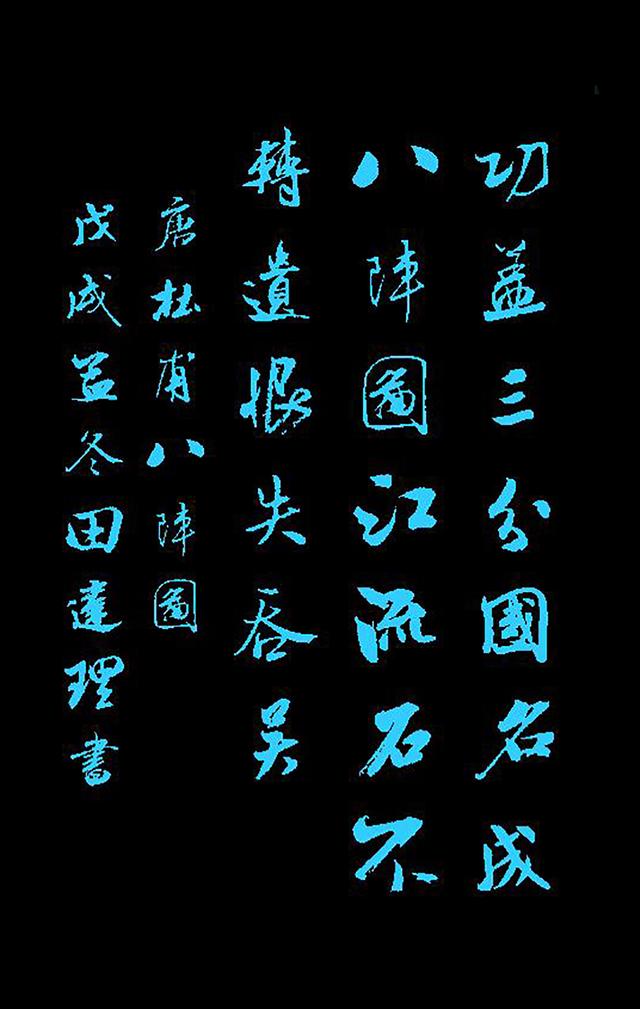 功盖三分國名成
八陣圖江流石不
轉遺恨失吞吴
唐杜甫八陣圖
戊戌孟冬田達理書